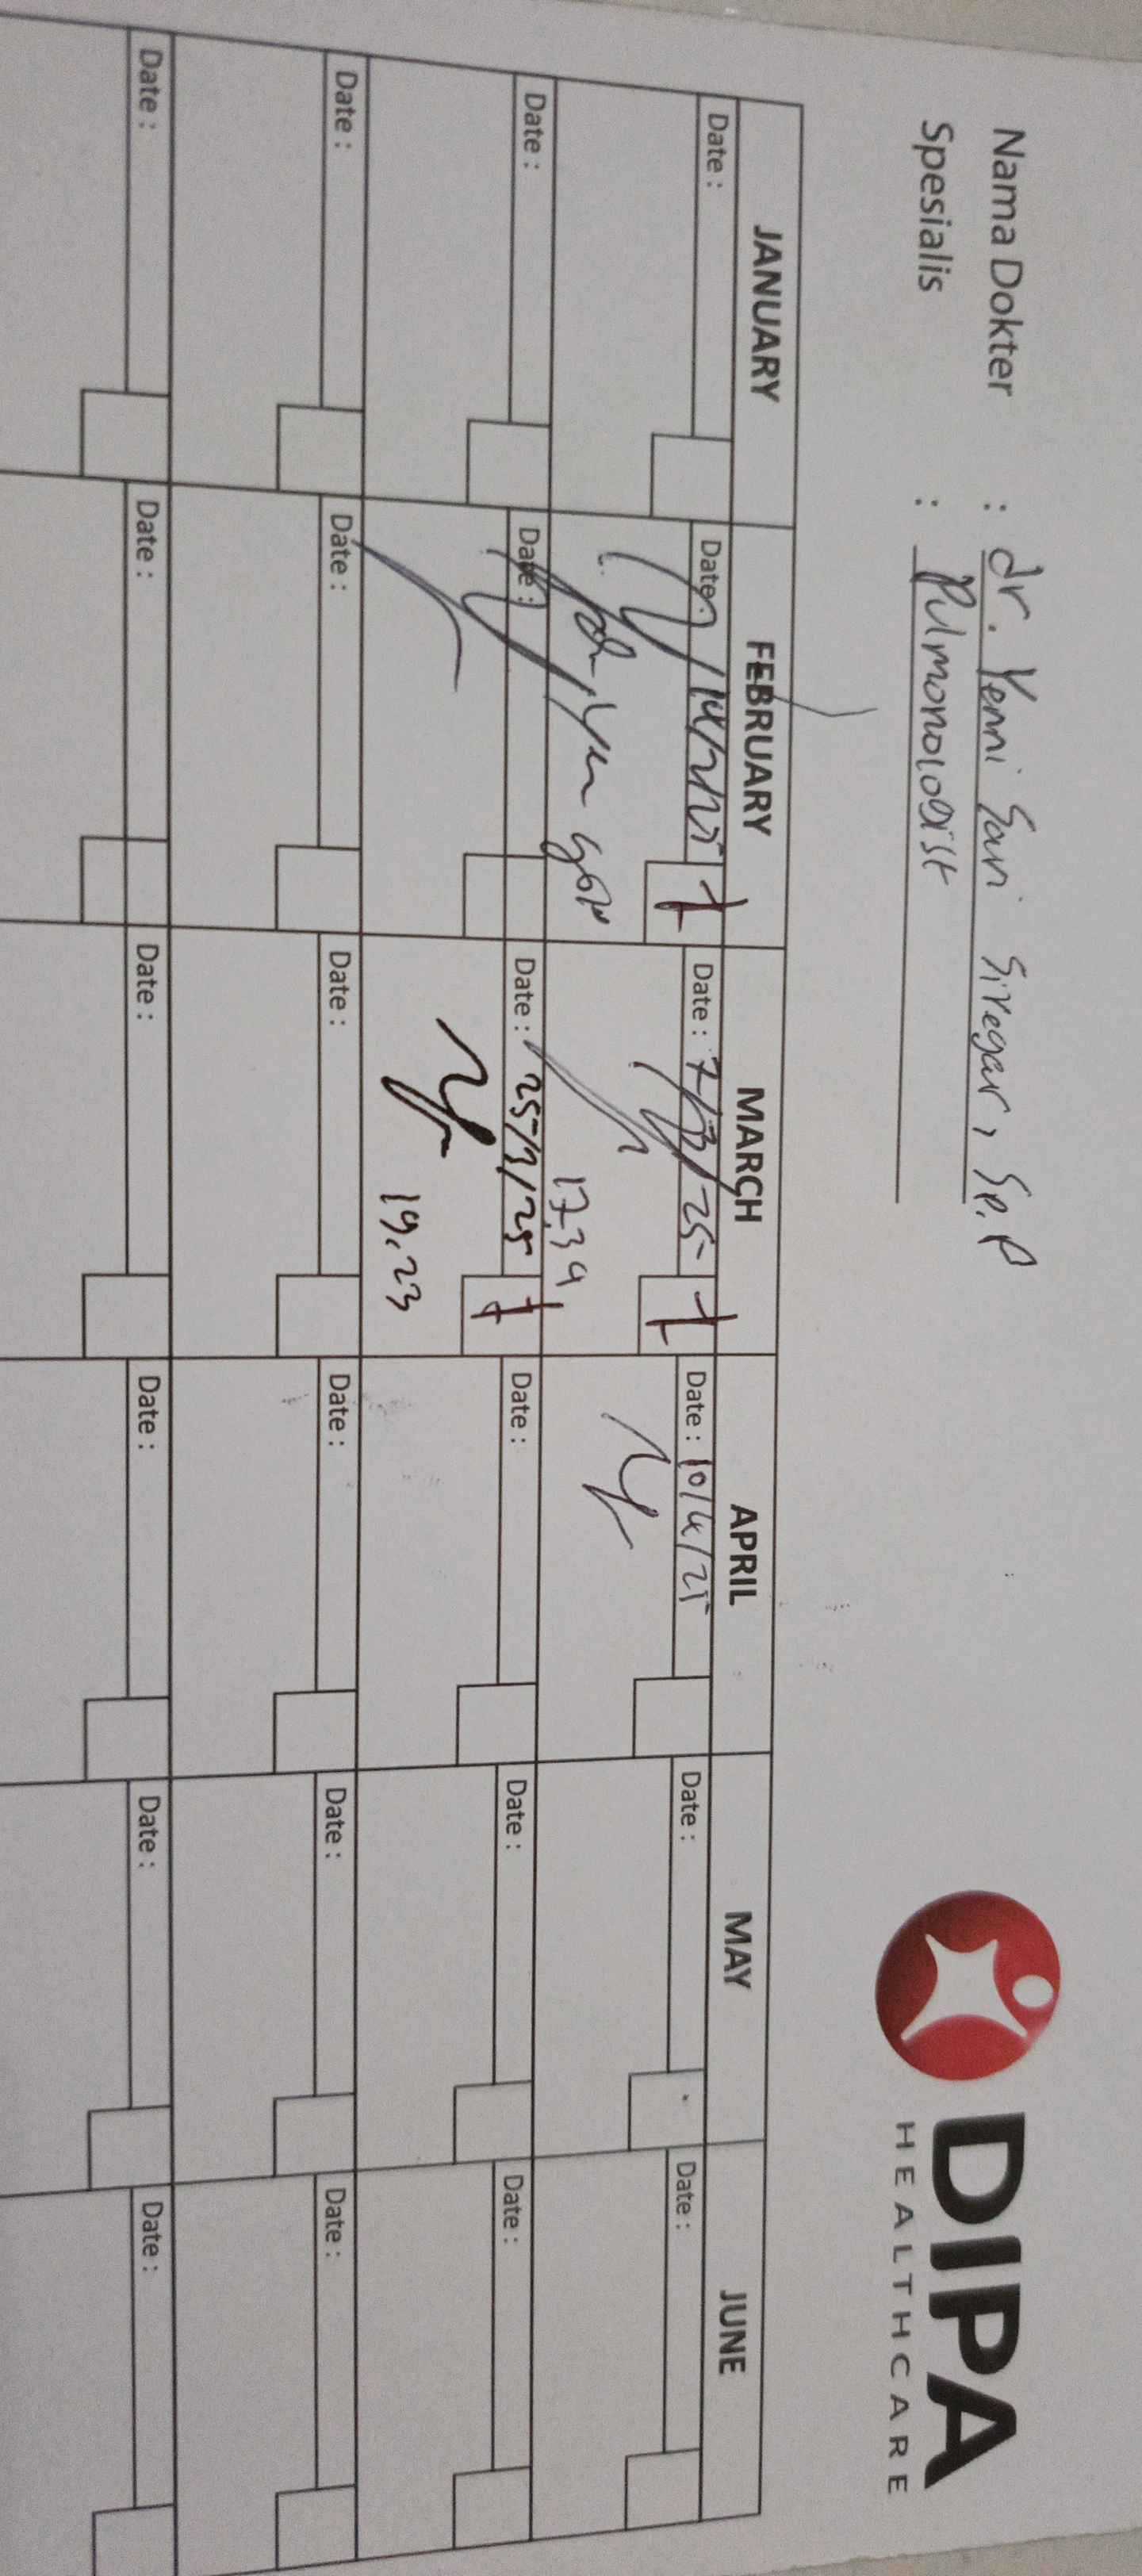 DIPA
HEALTHCARE
Nama Dokter : dr. Yenni Sari Siregar, Sp.P
Spesialis : Pulmonologist
JANUARY FEBRUARY MARCH APRIL MAY JUNE
Date : Date : 14/2/25 Date : 7/3/25 Date : 10/4/25 Date : Date :
17.39
Date : Date : Date : 25/3/25 Date : Date : Date :
19.23
Date : Date : Date : Date : Date : Date :
Date : Date : Date : Date : Date : Date :